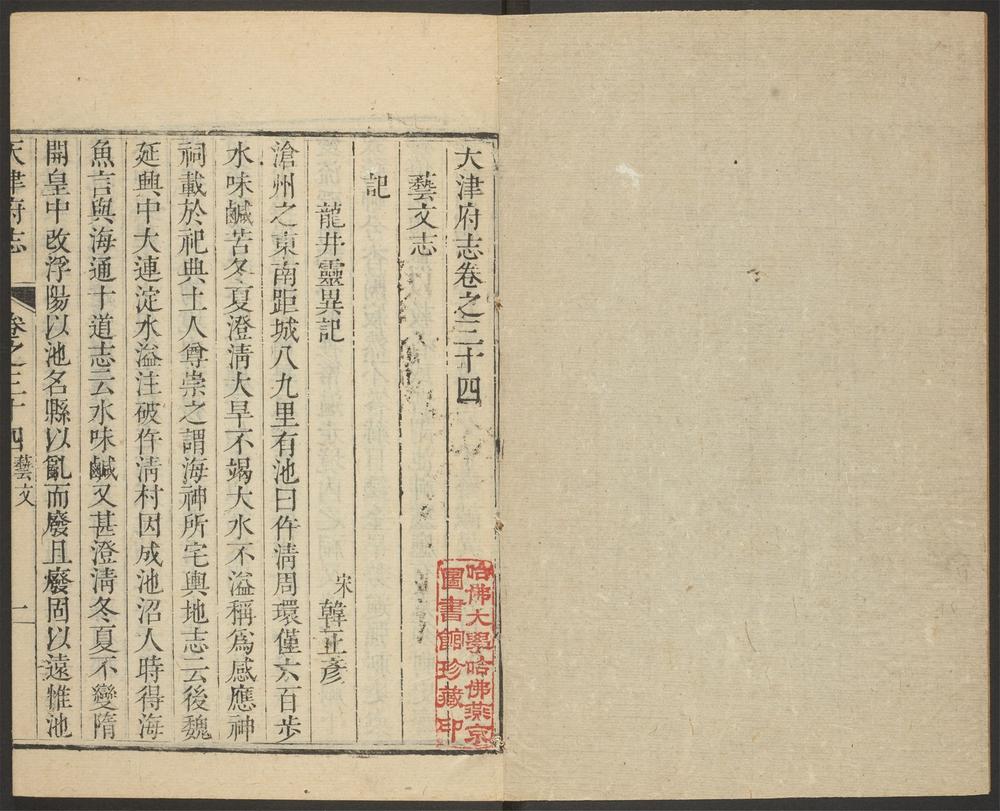 天津府志卷之三十四
藝文志
記
龍井靈異記
宋韓正彥
滄州之東南距城八九里有池曰仵清周環僅六百步
水味鹹苦冬夏澄清大旱不竭大水不溢稱為感應神
祠載於祀典土人尊崇之謂海神所宅輿地志云後魏
延興中大連淀水溢注破仵清村因成池沼人時得海
魚言與海通十道志云水味鹹又甚澄清冬夏不變隋
開皇中改浮陽以池名縣以亂而廢且廢固以遠惟池
天津府志
卷之三十四
藝文
一
哈佛大學哈佛燕京
圖書館珍藏印